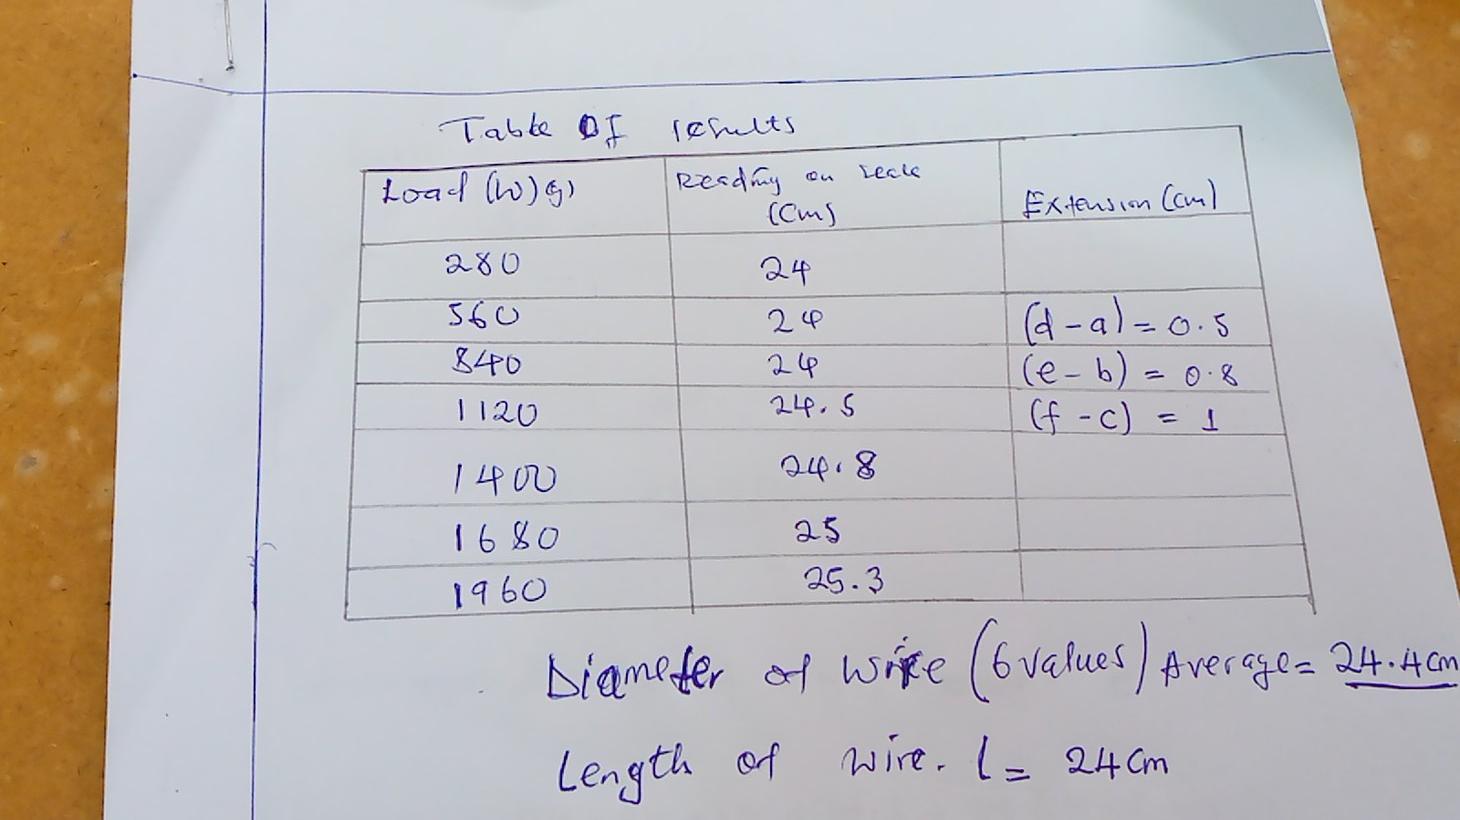 Table Of results
Load (W) g) Reading on scale (cm) Extension (cm)
280 24
560 24 (d - a) = 0.5
840 24 (e - b) = 0.8
1120 24.5 (f - c) = 1
1400 24.8
1680 25
1960 25.3
Diameter of wire (6 values) Average = 24.4cm
Length of wire. l = 24cm